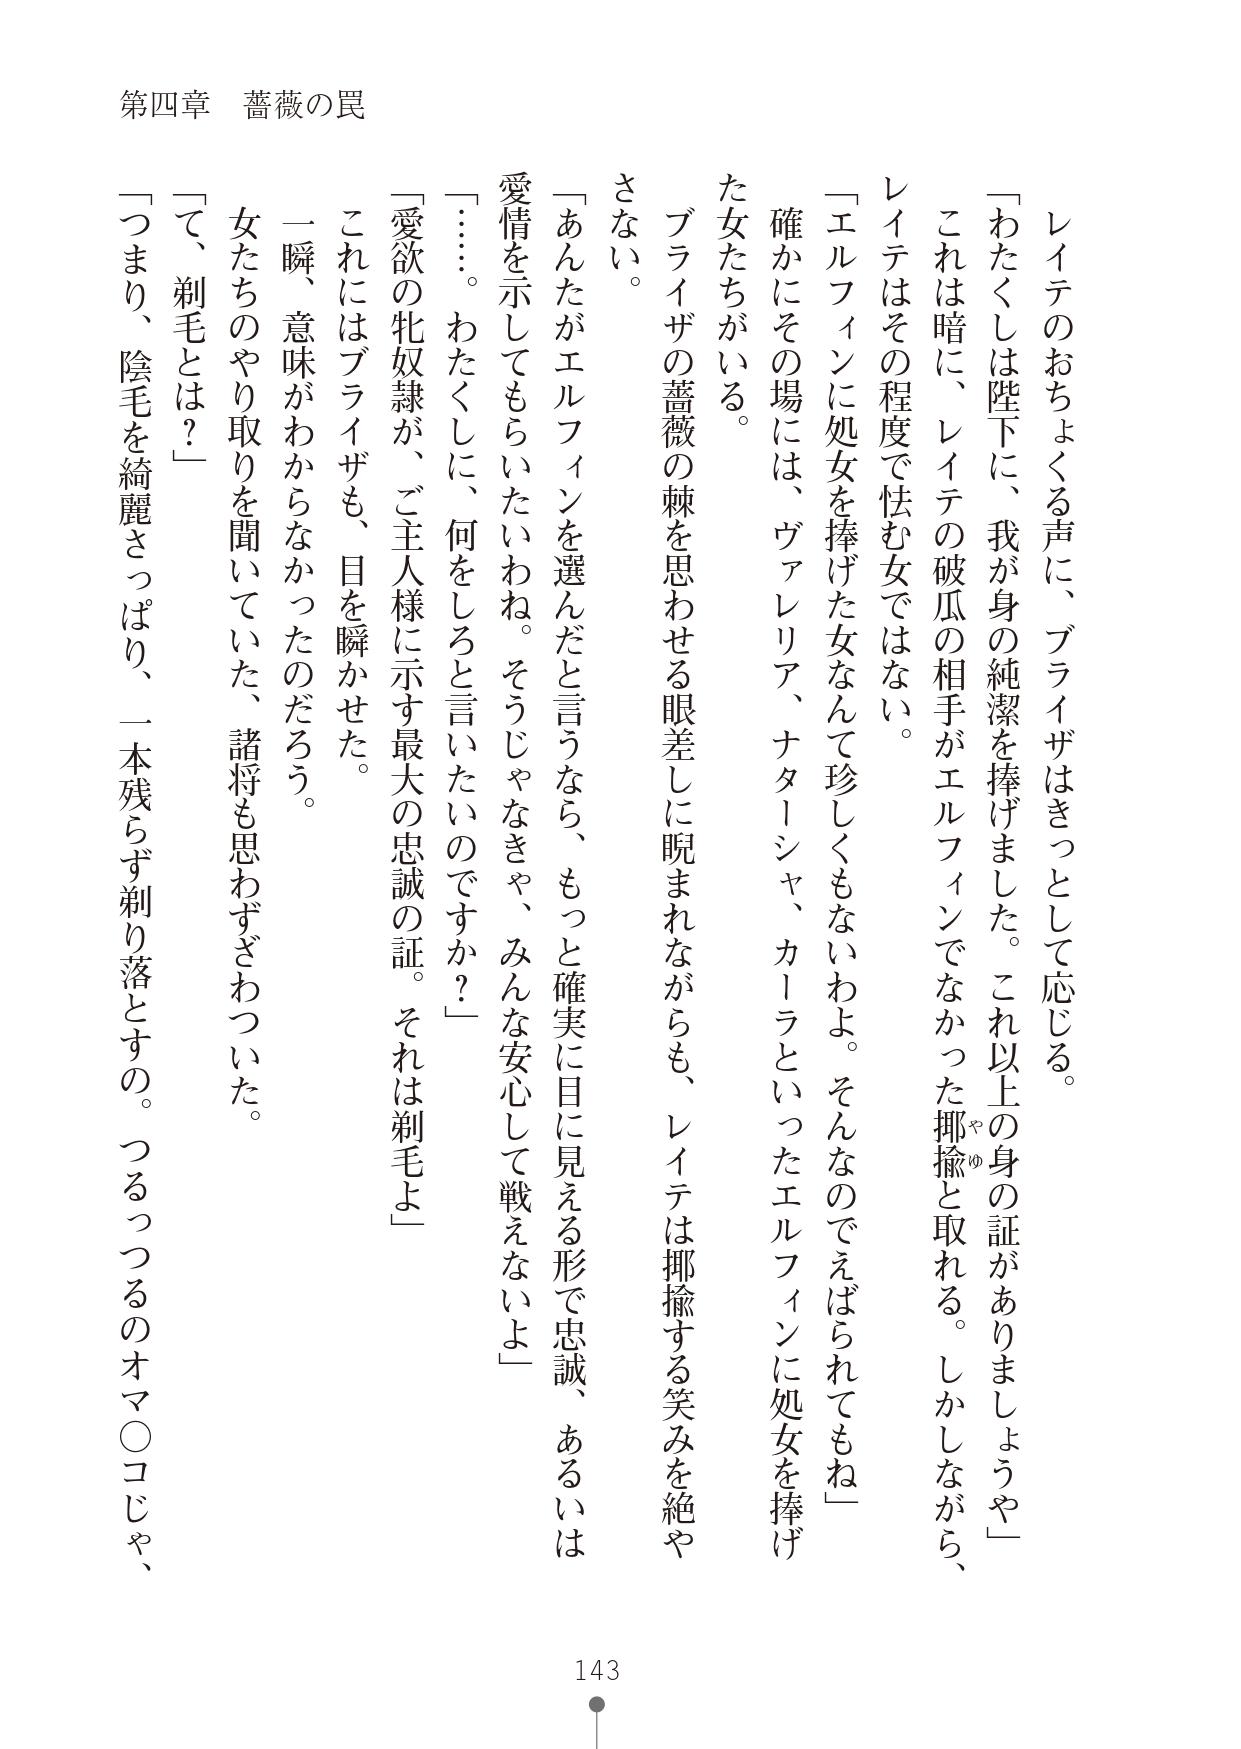 第四章　薔薇の罠
レイテのおちょくる声に、ブライザはきっとして応じる。
「わたくしは陛下に、我が身の純潔を捧げました。これ以上の身の証がありましょうや」
これは暗に、レイテの破瓜の相手がエルフィンでなかった揶揄と取れる。しかしながら、
やゆ
レイテはその程度で怯む女ではない。
「エルフィンに処女を捧げた女なんて珍しくもないわよ。そんなのでえばられてもね」
確かにその場には、ヴァレリア、ナターシャ、カーラといったエルフィンに処女を捧げ
た女たちがいる。
ブライザの薔薇の棘を思わせる眼差しに睨まれながらも、レイテは揶揄する笑みを絶や
さない。
「あんたがエルフィンを選んだと言うなら、もっと確実に目に見える形で忠誠、あるいは
愛情を示してもらいたいわね。そうじゃなきゃ、みんな安心して戦えないよ」
「……。わたくしに、何をしろと言いたいのですか？」
「愛欲の牝奴隷が、ご主人様に示す最大の忠誠の証。それは剃毛よ」
これにはブライザも、目を瞬かせた。
一瞬、意味がわからなかったのだろう。
女たちのやり取りを聞いていた、諸将も思わずざわついた。
「て、剃毛とは？」
「つまり、陰毛を綺麗さっぱり、一本残らず剃り落とすの。つるっつるのオマ〇コじゃ、
143